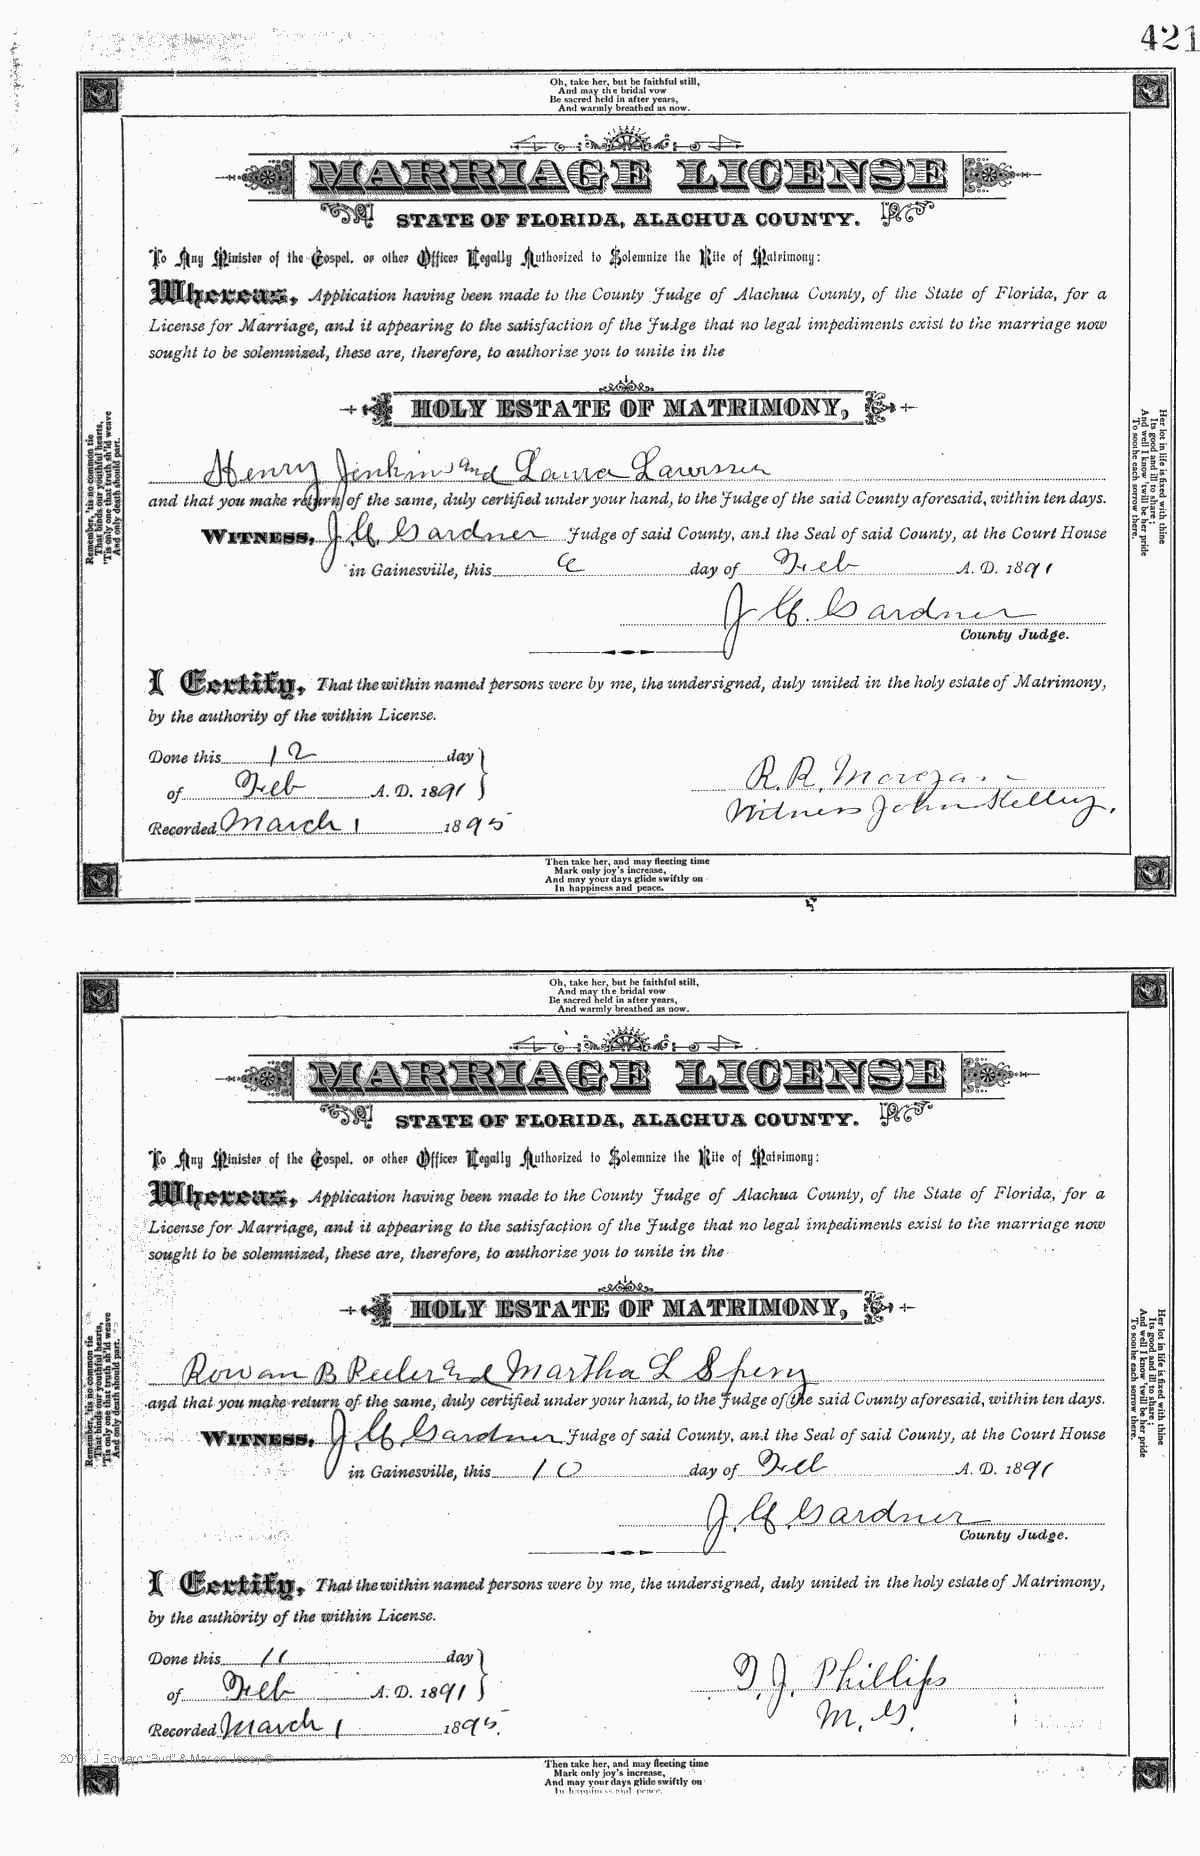 421
Oh, take her, but be faithful still,
And may the bridal vow
Be sacred held in after years,
And warmly breathed as now.
MARRIAGE LICENSE
STATE OF FLORIDA, ALACHUA COUNTY.
To Any Minister of the Gospel, or other Officer Legally Authorized to Solemnize the Rite of Matrimony:
Whereas, Application having been made to the County Judge of Alachua County, of the State of Florida, for a
License for Marriage, and it appearing to the satisfaction of the Judge that no legal impediments exist to the marriage now
sought to be solemnized, these are, therefore, to authorize you to unite in the
HOLY ESTATE OF MATRIMONY,
Henry Jenkins and Laura
and that you make return of the same, duly certified under your hand, to the Judge of the said County aforesaid, within ten days.
WITNESS, J. Gardner Judge of said County, and the Seal of said County, at the Court House
in Gainesville, this day of Feb A. D. 1891
J Gardner
County Judge.
I Certify, That the within named persons were by me, the undersigned, duly united in the holy estate of Matrimony,
by the authority of the within License.
Done this 12 day
of Feb A. D. 1891
Recorded March 1 1895
R. R.
Witness John Kelley.
Remember, 'tis no common tie
That binds our youthful hearts,
'Tis only one that truth sh'ld weave
And only death should part.
Her lot in life is fixed with thine
Its good and ill to share;
And well I know 'twill be her pride
To soothe each sorrow there.
Then take her, and may fleeting time
Mark only joy's increase,
And may your days glide swiftly on
In happiness and peace.
Oh, take her, but be faithful still,
And may the bridal vow
Be sacred held in after years,
And warmly breathed as now.
MARRIAGE LICENSE
STATE OF FLORIDA, ALACHUA COUNTY.
To Any Minister of the Gospel, or other Officer Legally Authorized to Solemnize the Rite of Matrimony:
Whereas, Application having been made to the County Judge of Alachua County, of the State of Florida, for a
License for Marriage, and it appearing to the satisfaction of the Judge that no legal impediments exist to the marriage now
sought to be solemnized, these are, therefore, to authorize you to unite in the
HOLY ESTATE OF MATRIMONY,
Rowan B Peeler and Martha L Spery
and that you make return of the same, duly certified under your hand, to the Judge of the said County aforesaid, within ten days.
WITNESS, J. Gardner Judge of said County, and the Seal of said County, at the Court House
in Gainesville, this 10 day of Feb A. D. 1891
J. Gardner
County Judge.
I Certify, That the within named persons were by me, the undersigned, duly united in the holy estate of Matrimony,
by the authority of the within License.
Done this 11 day
of Feb A. D. 1891
Recorded March 1 1895.
J. Phillips
M. G.
Remember, 'tis no common tie
That binds our youthful hearts,
'Tis only one that truth sh'ld weave
And only death should part.
Her lot in life is fixed with thine
Its good and ill to share;
And well I know 'twill be her pride
To soothe each sorrow there.
Then take her, and may fleeting time
Mark only joy's increase,
And may your days glide swiftly on
In happiness and peace.
J Edward "Bud" & Marion